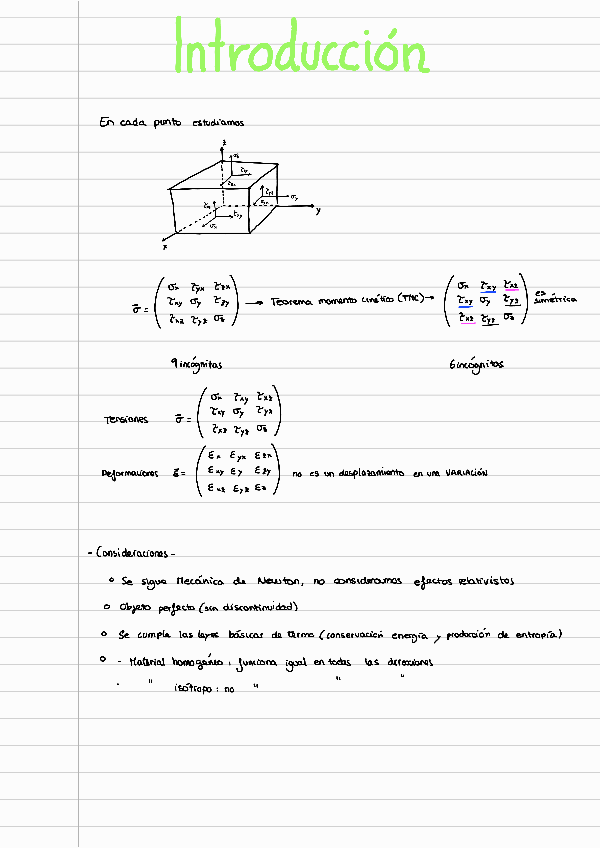 Introducción
En cada punto estudiamos
z
σz
τyz
σy
τxy
σx
y
x
σ̄ = ( σx τyx τzx → Teorema momento cinético (TMC) → ( σx τxy τxz es
τxy σy τzy τxy σy τyz simétrica
τxz τyz σz ) τxz τyz σz )
9 incógnitas 6 incógnitas
σx τxy τxz
Tensiones σ̄ = ( τxy σy τyz )
τxz τyz σz
εx εyx εzx
Deformaciones ε̄ = ( εxy εy εzy ) no es un desplazamiento en una VARIACIÓN
εxz εyz εz
- Consideraciones -
o Se sigue Mecánica de Newton, no consideramos efectos relativistas
o Objeto perfecto (sin discontinuidad)
o Se cumple las leyes básicas de termo (conservación energía y producción de entropía)
o - Material homogéneo: funciona igual en todas las direcciones
- " isótropo: no " " "